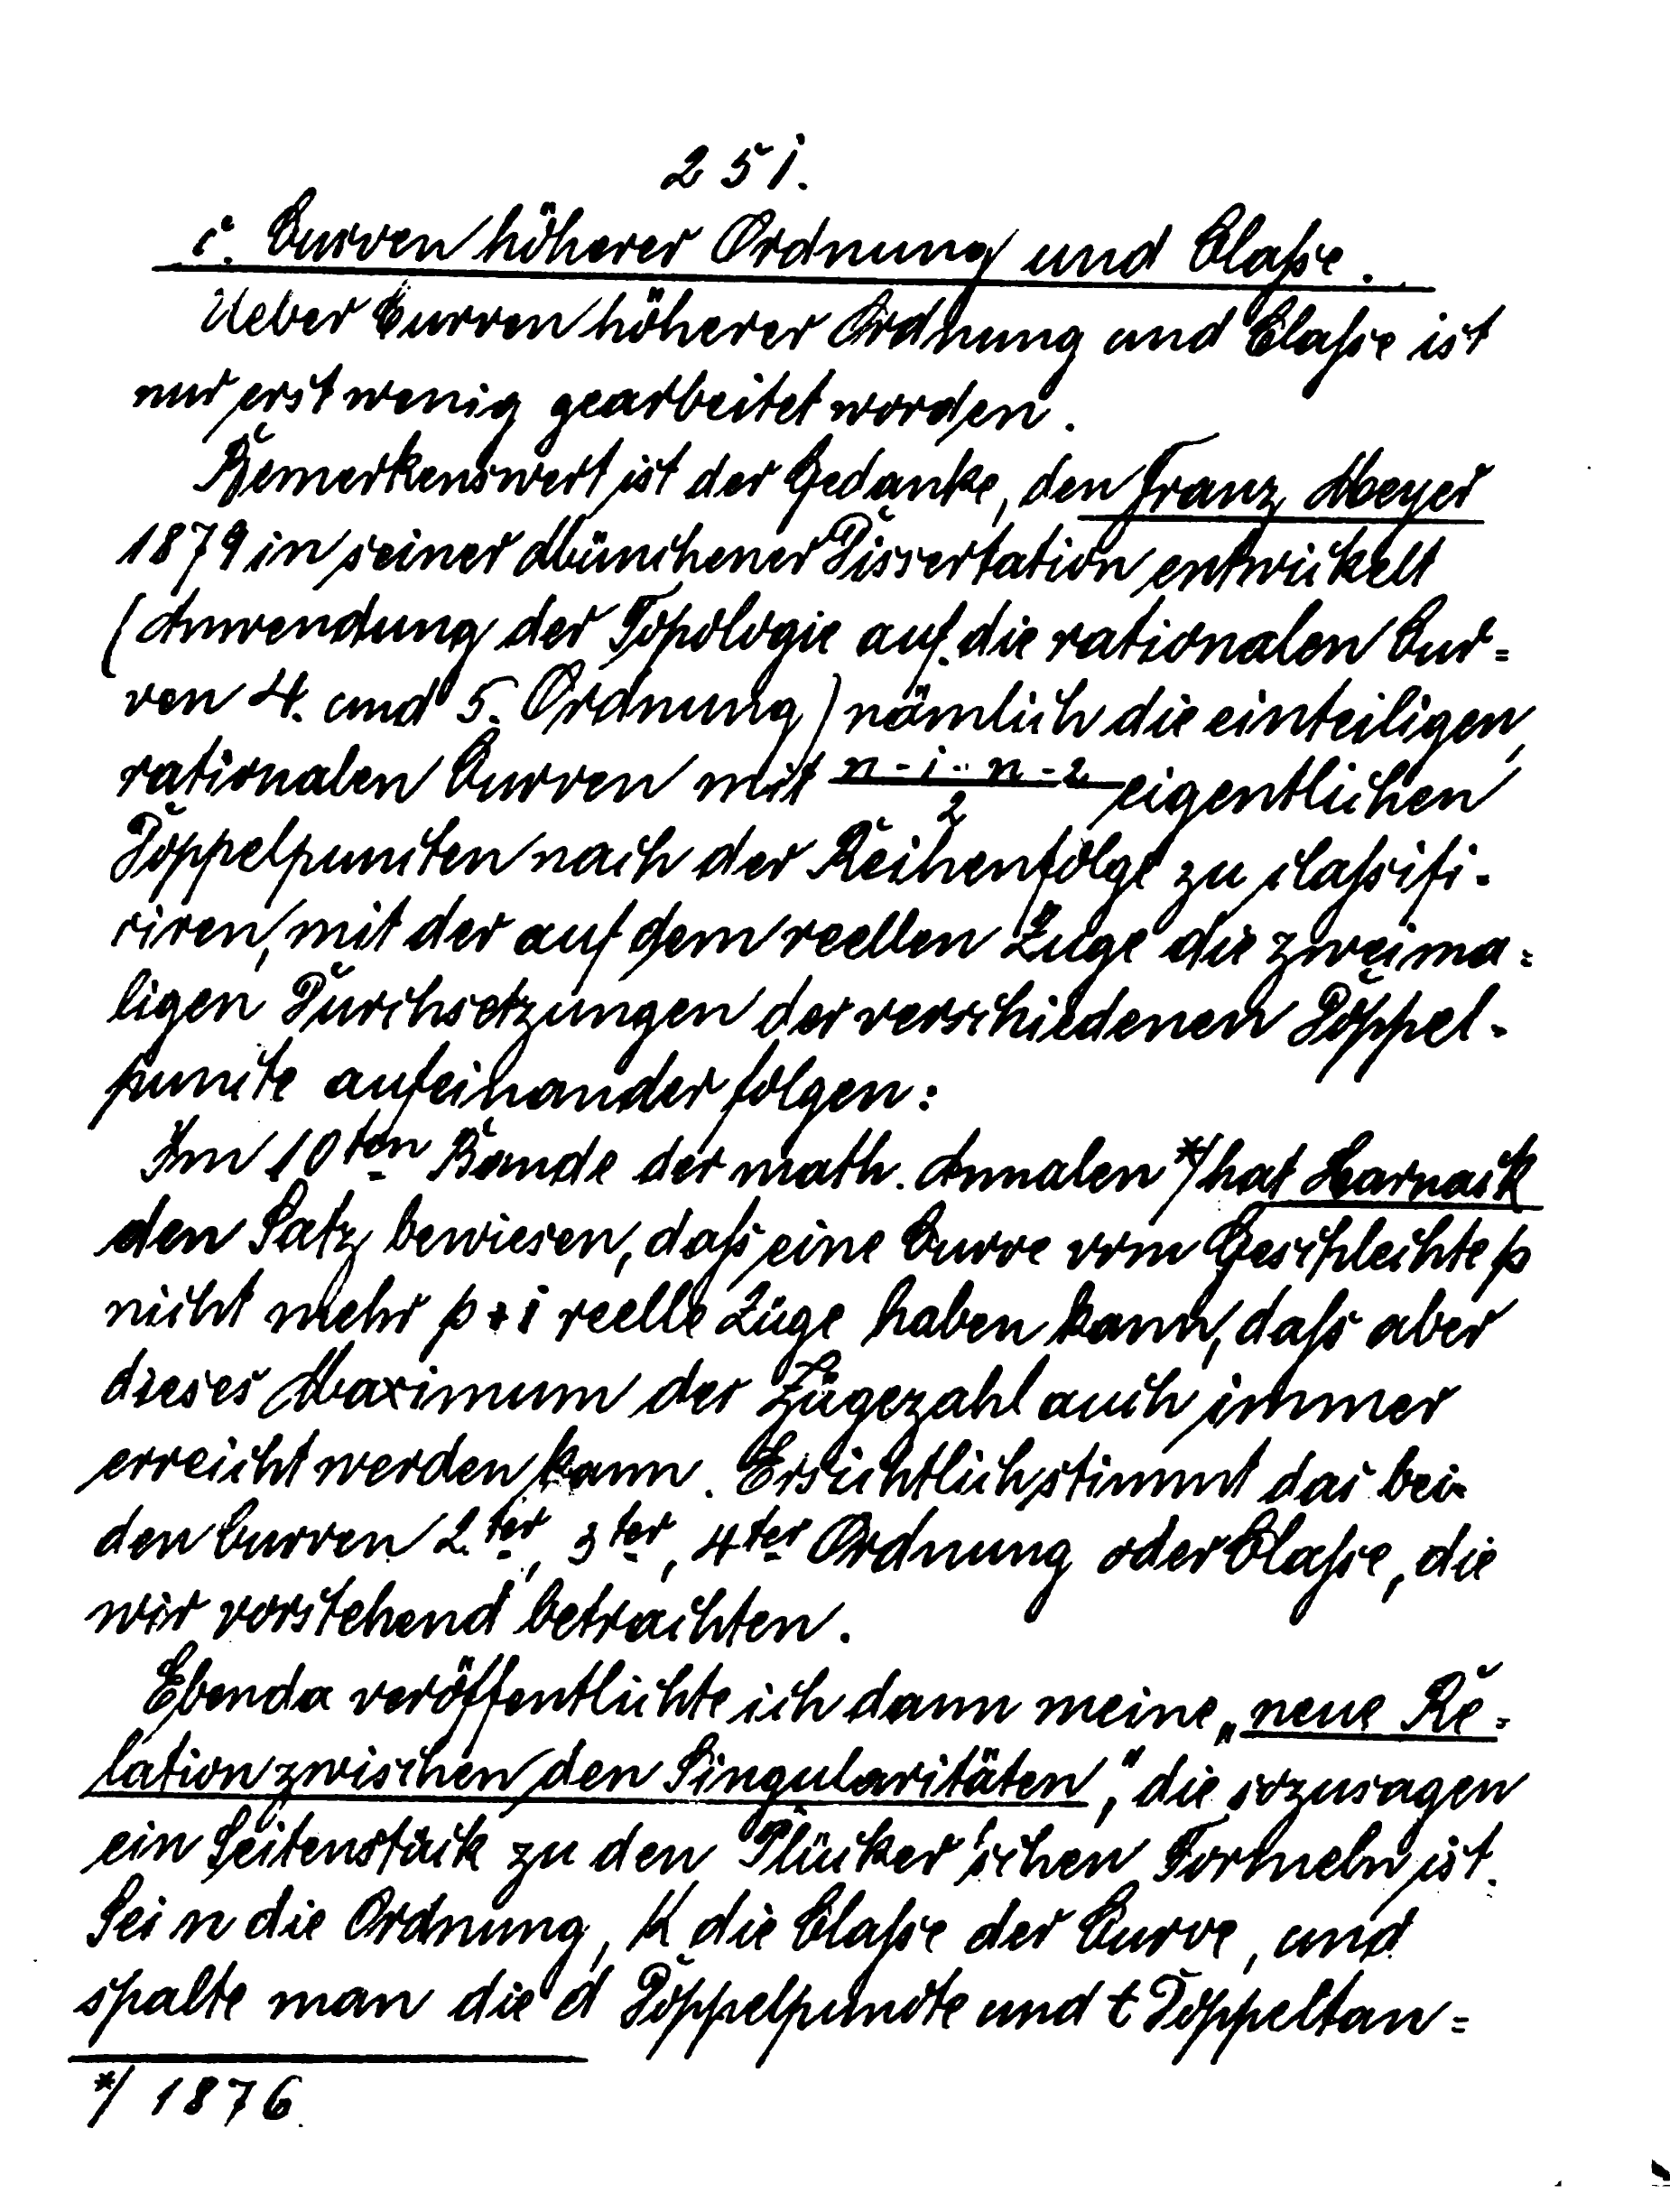 251.
c. Curven höherer Ordnung und Classe.
Ueber Curven höherer Ordnung und Classe ist
nur erst wenig gearbeitet worden.
Bemerkenswert ist der Gedanke, den Franz Meyer
1879 in seiner Münchener Dissertation entwickelt
(Anwendung der Topologie auf die rationalen Cur=
ven 4. und 5. Ordnung) nämlich die einteiligen,
rationalen Curven mit n-1·n-2/2 eigentlichen
Doppelpuncten nach der Reihenfolge zu classifi-
ciren, mit der auf dem reellen Zuge die zweima=
ligen Durchsetzungen der verschiedenen Doppel-
puncte aufeinander folgen:
Im 10ten Bande der math. Annalen *) hat Harnack
den Satz bewiesen, daſs eine Curve vom Geschlechte p
nicht mehr p+1 reelle Züge haben kann, daſs aber
dieses Maximum der Zügezahl auch immer
erreicht werden kann. Ersichtlich stimmt das bei
den Curven 2ter, 3ter, 4ter Ordnung oder Classe, die
wir vorstehend betrachten.
Ebenda veröffentlichte ich dann meine „neue Re=
lation zwischen den Singularitäten“, die sozusagen
ein Seitenstück zu den Plücker'schen Formeln ist.
Sei n die Ordnung, K die Classe der Curve, und
spalte man die d Doppelpuncte und t Doppeltan=
*) 1876.